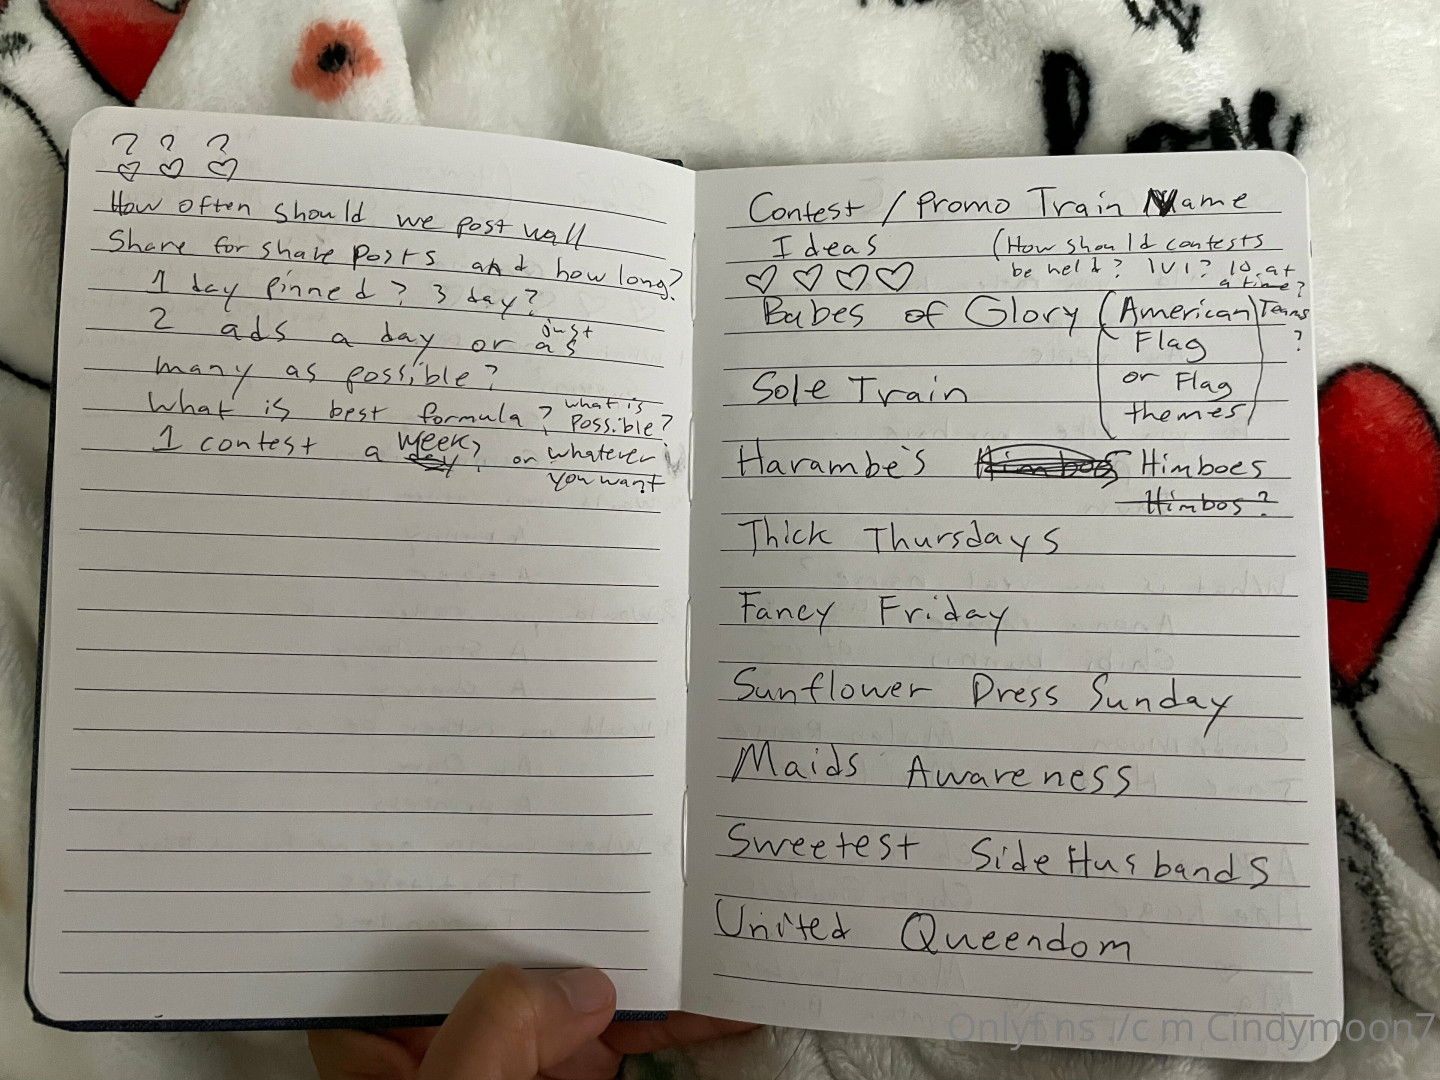 ? ? ?
How often should we post wall
Share for share posts and how long?
1 day pinned? 3 day?
2 ads a day or just as
many as possible?
What is best formula? what is possible?
1 contest a week? or whatever
you want
Contest / Promo Train Name
Ideas (How should contests
be held? 1v1? 10 at
a time?
Teams
?
Babes of Glory (American)
Flag
or Flag
themes
Sole Train
Harambe's Himboes
Himbos?
Thick Thursdays
Fancy Friday
Sunflower Dress Sunday
Maids Awareness
Sweetest Side Husbands
United Queendom
Cindymoon7